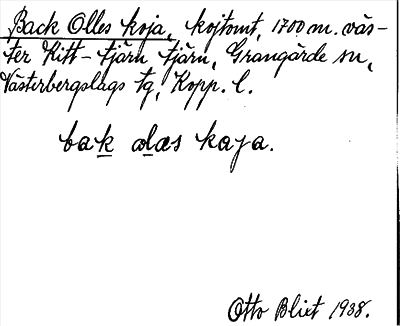 Back Olles koja, kojtomt, 1700 m. väs-
ter Kitt-tjärn tjärn, Grangärde sn,
Västerbergslags tg, Kopp. l.
bak olas kaja.
Otto Blixt 1938.